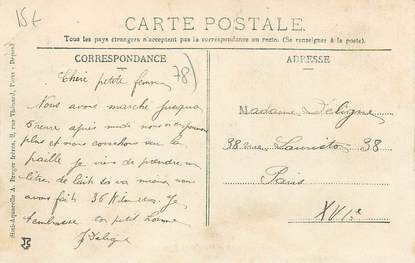 15f
CARTE POSTALE
Tous les pays étrangers n'acceptent pas la correspondance au recto. (Se renseigner à la poste).
CORRESPONDANCE
ADRESSE
78)
Cheri petite femme
Nous avons marche jusque
5 heure après midi nous n'en pouvons
plus et nous couchons sur la
paille Je viens de prendre un
litre de lait sa va mieux nous
avons fait 36 Kilometres. Je
t'embrasse ton petit homme
J Deligne
Madame Deligne
38 rue Lauriston 38
Paris
XVIe
Simi-Aquarelle A. Berger frères, 9, rue Thénard, Paris - Déposé